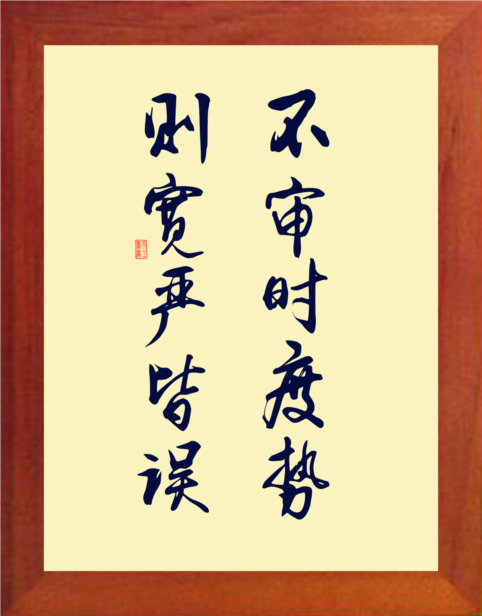 不审时度势
则宽严皆误